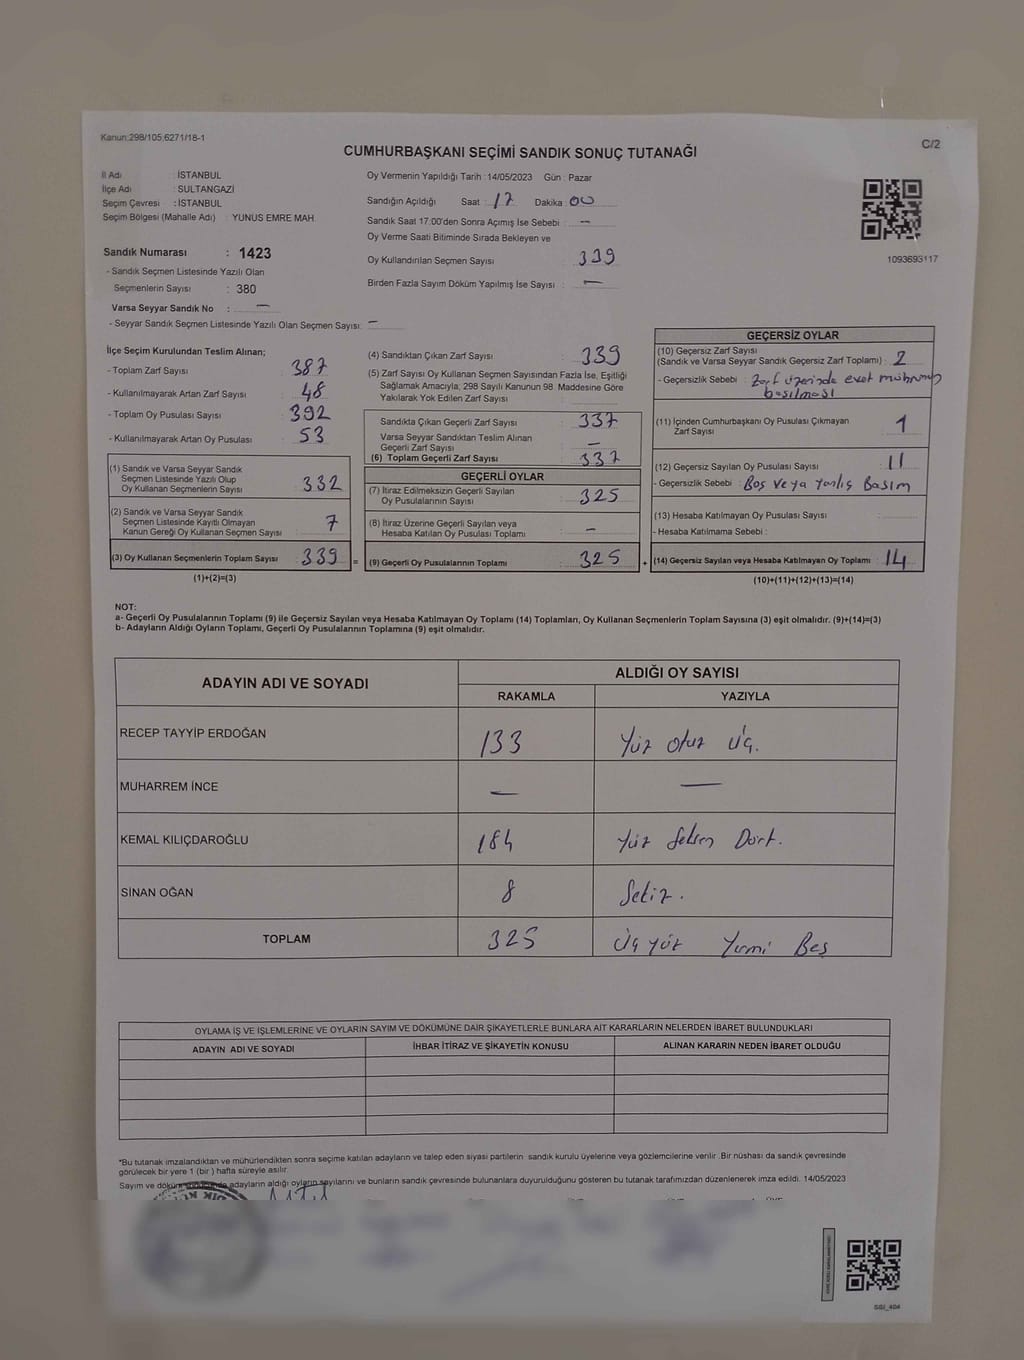 Kanun:298/105,6271/18-1
C/2
CUMHURBAŞKANI SEÇİMİ SANDIK SONUÇ TUTANAĞI
İl Adı : İSTANBUL
İlçe Adı : SULTANGAZİ
Seçim Çevresi : İSTANBUL
Seçim Bölgesi (Mahalle Adı) : YUNUS EMRE MAH.
Sandık Numarası : 1423
- Sandık Seçmen Listesinde Yazılı Olan
Seçmenlerin Sayısı : 380
Varsa Seyyar Sandık No : —
- Seyyar Sandık Seçmen Listesinde Yazılı Olan Seçmen Sayısı: —
Oy Vermenin Yapıldığı Tarih : 14/05/2023 Gün : Pazar
Sandığın Açıldığı Saat : 17 Dakika : 00
Sandık Saat 17:00'den Sonra Açımış İse Sebebi : —
Oy Verme Saati Bitiminde Sırada Bekleyen ve
Oy Kullandırılan Seçmen Sayısı : 339
Birden Fazla Sayım Döküm Yapılmış İse Sayısı : —
1093693117
İlçe Seçim Kurulundan Teslim Alınan;
- Toplam Zarf Sayısı : 387
- Kullanılmayarak Artan Zarf Sayısı : 48
- Toplam Oy Pusulası Sayısı : 392
- Kullanılmayarak Artan Oy Pusulası : 53
(1) Sandık ve Varsa Seyyar Sandık
Seçmen Listesinde Yazılı Olup
Oy Kullanan Seçmenlerin Sayısı : 332
(2) Sandık ve Varsa Seyyar Sandık
Seçmen Listesinde Kayıtlı Olmayan
Kanun Gereği Oy Kullanan Seçmen Sayısı : 7
(3) Oy Kullanan Seçmenlerin Toplam Sayısı : 339 =
(1)+(2)=(3)
(4) Sandıktan Çıkan Zarf Sayısı : 339
(5) Zarf Sayısı Oy Kullanan Seçmen Sayısından Fazla İse, Eşitliği
Sağlamak Amacıyla; 298 Sayılı Kanunun 98. Maddesine Göre
Yakılarak Yok Edilen Zarf Sayısı :
Sandıkta Çıkan Geçerli Zarf Sayısı : 337
Varsa Seyyar Sandıktan Teslim Alınan
Geçerli Zarf Sayısı : —
(6) Toplam Geçerli Zarf Sayısı : 337
GEÇERLİ OYLAR
(7) İtiraz Edilmeksizin Geçerli Sayılan
Oy Pusulalarının Sayısı : 325
(8) İtiraz Üzerine Geçerli Sayılan veya
Hesaba Katılan Oy Pusulası Toplamı : -
(9) Geçerli Oy Pusulalarının Toplamı : 325 +
GEÇERSİZ OYLAR
(10) Geçersiz Zarf Sayısı
(Sandık ve Varsa Seyyar Sandık Geçersiz Zarf Toplamı) : 2
- Geçersizlik Sebebi : Zarf üzerinde evet mührünün
basılması
(11) İçinden Cumhurbaşkanı Oy Pusulası Çıkmayan
Zarf Sayısı : 1
(12) Geçersiz Sayılan Oy Pusulası Sayısı : 11
- Geçersizlik Sebebi : Boş veya Yanlış Basım
(13) Hesaba Katılmayan Oy Pusulası Sayısı :
- Hesaba Katılmama Sebebi :
(14) Geçersiz Sayılan veya Hesaba Katılmayan Oy Toplamı : 14
(10)+(11)+(12)+(13)=(14)
NOT:
a- Geçerli Oy Pusulalarının Toplamı (9) ile Geçersiz Sayılan veya Hesaba Katılmayan Oy Toplamı (14) Toplamları, Oy Kullanan Seçmenlerin Toplam Sayısına (3) eşit olmalıdır. (9)+(14)=(3)
b- Adayların Aldığı Oyların Toplamı, Geçerli Oy Pusulalarının Toplamına (9) eşit olmalıdır.
ADAYIN ADI VE SOYADI
ALDIĞI OY SAYISI
RAKAMLA YAZIYLA
RECEP TAYYİP ERDOĞAN 133 Yüz otuz üç.
MUHARREM İNCE — —
KEMAL KILIÇDAROĞLU 184 Yüz Seksen Dört.
SİNAN OĞAN 8 Sekiz.
TOPLAM 325 Üç yüz Yirmi Beş
OYLAMA İŞ VE İŞLEMLERİNE VE OYLARIN SAYIM VE DÖKÜMÜNE DAİR ŞİKAYETLERLE BUNLARA AİT KARARLARIN NELERDEN İBARET BULUNDUKLARI
ADAYIN ADI VE SOYADI İHBAR İTİRAZ VE ŞİKAYETİN KONUSU ALINAN KARARIN NEDEN İBARET OLDUĞU
*Bu tutanak imzalandıktan ve mühürlendikten sonra seçime katılan adayların ve talep eden siyasi partilerin sandık kurulu üyelerine veya gözlemcilerine verilir. Bir nüshası da sandık çevresinde
görülecek bir yere 1 (bir) hafta süreyle asılır.
Sayım ve döküm sonucunda adayların aldığı oyların sayılarını ve bunların sandık çevresinde bulunanlara duyurulduğunu gösteren bu tutanak tarafımızdan düzenlenerek imza edildi. 14/05/2023
SGI_404